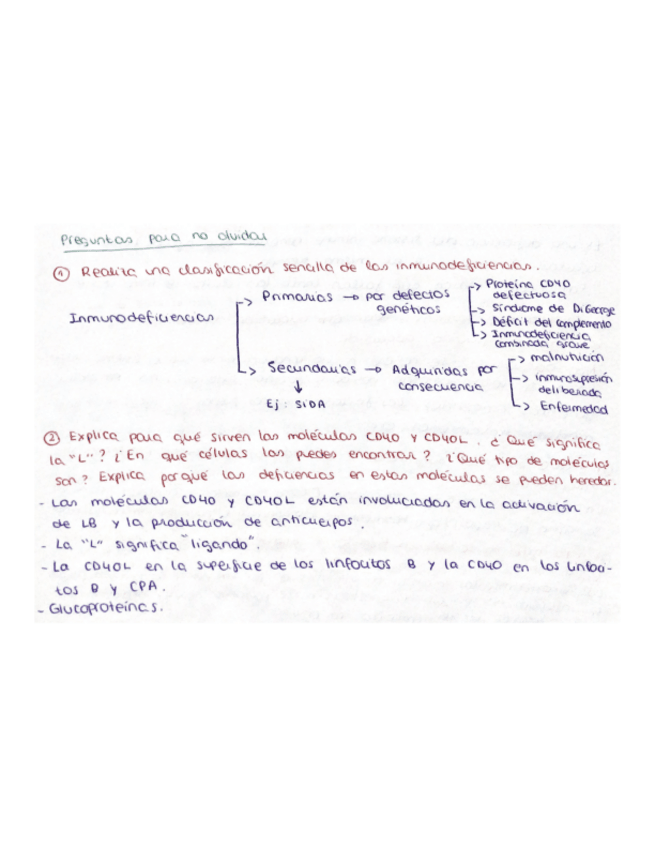 Preguntas para no olvidar
① Realiza una clasificación sencilla de las inmunodeficiencias.
Inmunodeficiencias
-> Primarias -> por defectos genéticos
-> Proteína CD40 defectuosa
-> Síndrome de DiGeorge
-> Déficit del complemento
-> Inmunodeficiencia combinada grave.
-> Secundarias -> Adquiridas por consecuencia
↓
Ej: SIDA
-> malnutrición
-> inmunosupresión deliberada
-> Enfermedad
② Explica para qué sirven las moléculas CD40 y CD40L. ¿Qué significa
la "L"? ¿En qué células las puedes encontrar? ¿Qué tipo de moléculas
son? Explica porqué las deficiencias en estas moléculas se pueden heredar.
- Las moléculas CD40 y CD40L están involucradas en la activación
de LB y la producción de anticuerpos.
- La "L" significa "ligando".
- La CD40L en la superficie de los linfocitos B y la CD40 en los linfoci-
tos B y CPA.
- Glucoproteínas.